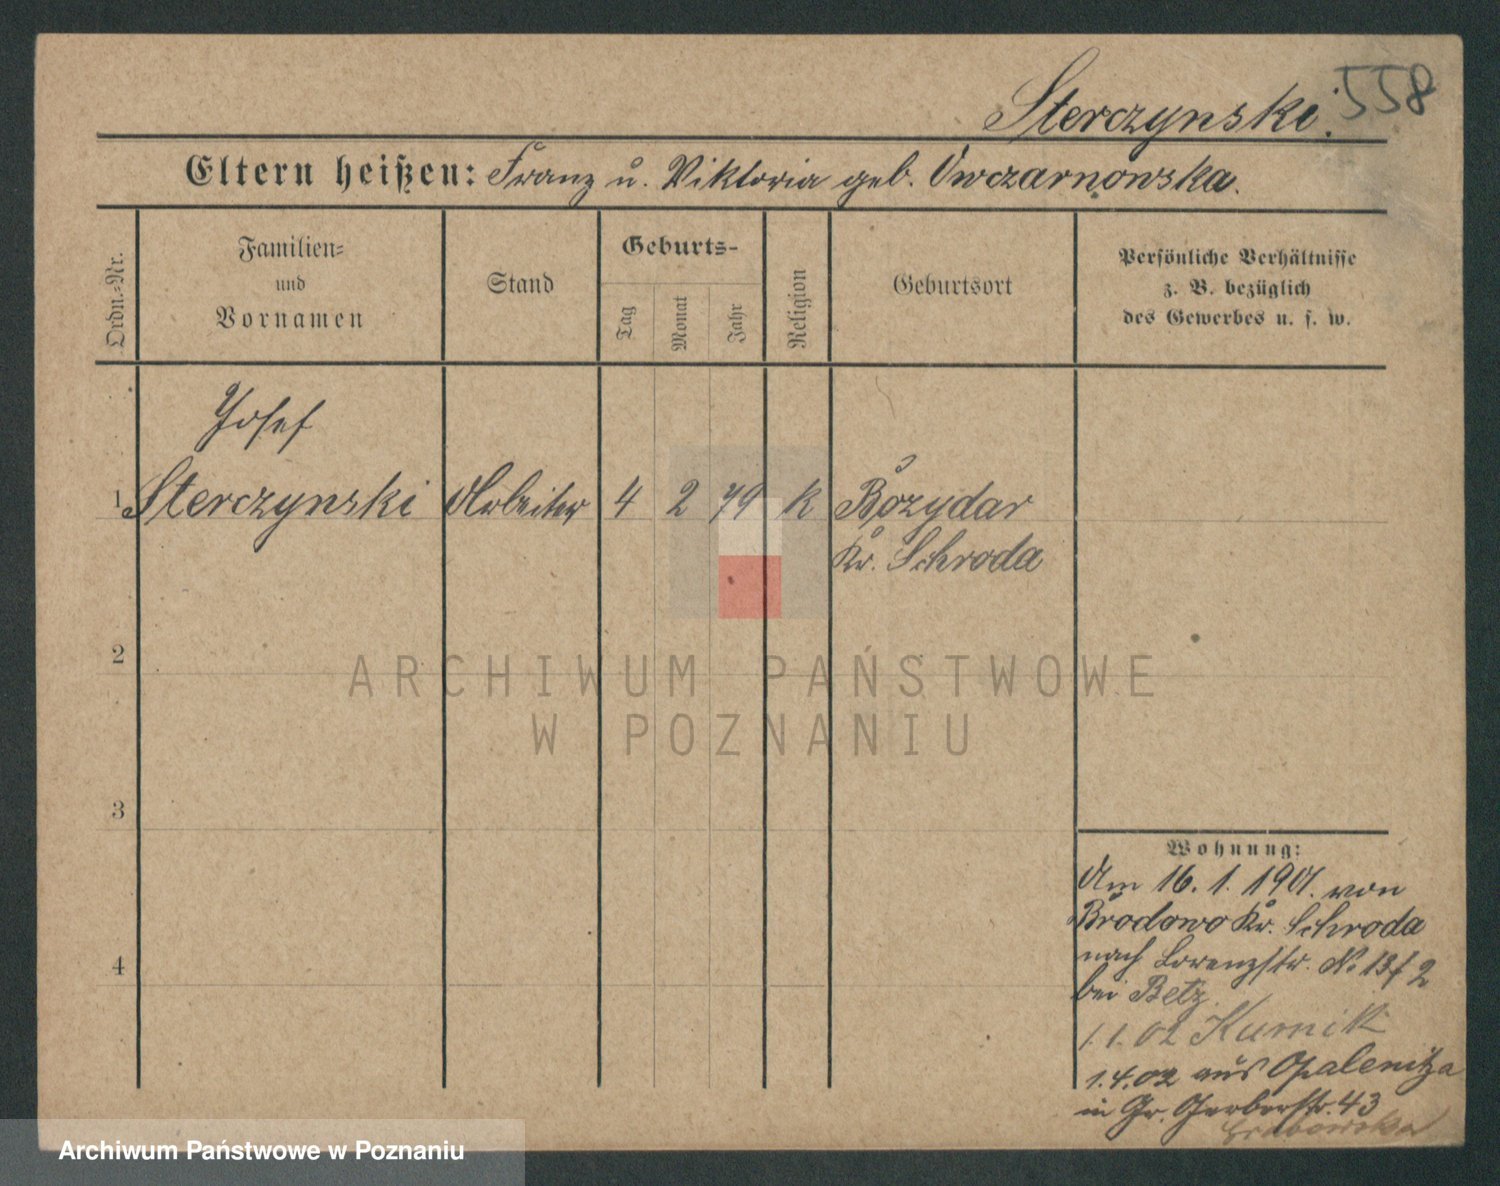 558
Sterczynski.
Eltern heißen: Franz u. Viktoria geb. Owczarnowska.
Ordn.-Nr.
Familien-
und
Vornamen
Stand
Geburts-
Tag
Monat
Jahr
Religion
Geburtsort
Persönliche Verhältnisse
z. B. bezüglich
des Gewerbes u. s. w.
Josef
1 Sterczynski Arbeiter 4 2 79 K Bozydar
Kr. Schroda
2
3
4
Wohnung:
Am 16. 1. 1901. von
Brodowo Kr. Schroda
nach Lorenzstr. No 13/2
bei Betz.
1.1.02 Kurnik
1.4.02 aus Opalenitza
in Gr. Gerberstr. 43
Grabowska
ARCHIWUM PAŃSTWOWE
W POZNANIU
Archiwum Państwowe w Poznaniu